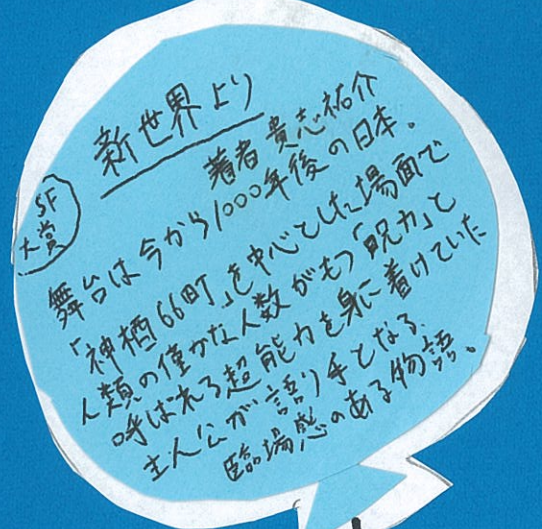 新世界より
著者 貴志祐介
SF
大賞
舞台は今から1000年後の日本。
「神栖66町」を中心とした場面で
人類の僅かな人数がもつ「呪力」と
呼ばれる超能力を身に着けていた
主人公が語り手となる、
臨場感のある物語。